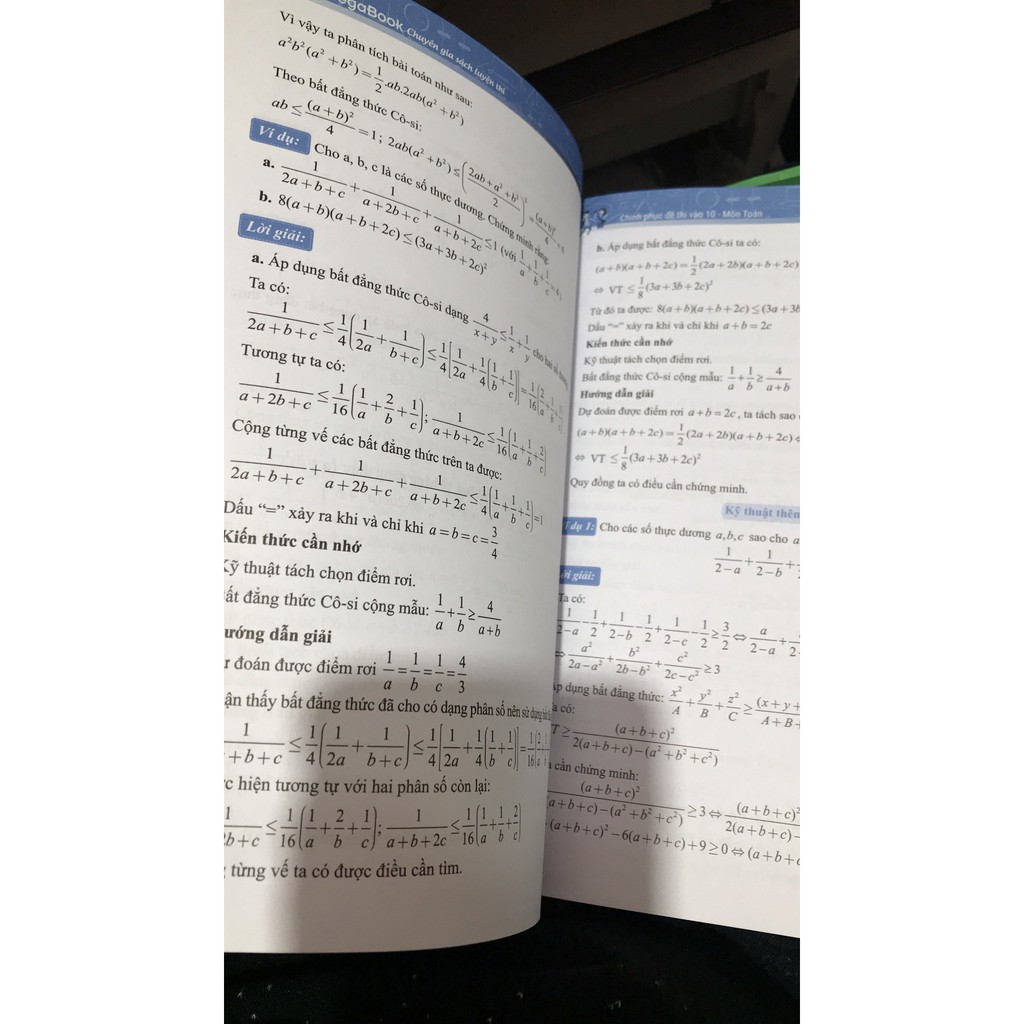 egaBook Chuyên gia sách luyện thi
Vì vậy ta phân tích bài toán như sau:
a²b²(a² + b²) = 1/2 .ab.2ab(a² + b²)
Theo bất đẳng thức Cô-si:
ab ≤ (a+b)²/4 = 1; 2ab(a² + b²) ≤ ((2ab + a² + b²)/2)²
Ví dụ: Cho a, b, c là các số thực dương. Chứng minh rằng:
a. 1/(2a+b+c) + 1/(a+2b+c) + 1/(a+b+2c) ≤ 1 (với 1/a + 1/b + 1/c = 4)
b. 8(a+b)(a+b+2c) ≤ (3a+3b+2c)²
Lời giải:
a. Áp dụng bất đẳng thức Cô-si dạng 4/(x+y) ≤ 1/x + 1/y cho hai số dương
Ta có:
1/(2a+b+c) ≤ 1/4(1/2a + 1/(b+c)) ≤ 1/4[1/2a + 1/4(1/b + 1/c)] = 1/16(2/a + 1/b + 1/c)
Tương tự ta có:
1/(a+2b+c) ≤ 1/16(1/a + 2/b + 1/c); 1/(a+b+2c) ≤ 1/16(1/a + 1/b + 2/c)
Cộng từng vế các bất đẳng thức trên ta được:
1/(2a+b+c) + 1/(a+2b+c) + 1/(a+b+2c) ≤ 1/4(1/a + 1/b + 1/c) = 1
Dấu “=” xảy ra khi và chỉ khi a = b = c = 3/4
Kiến thức cần nhớ
Kỹ thuật tách chọn điểm rơi.
ất đẳng thức Cô-si cộng mẫu: 1/a + 1/b ≥ 4/(a+b)
ướng dẫn giải
đoán được điểm rơi 1/a = 1/b = 1/c = 4/3
ận thấy bất đẳng thức đã cho có dạng phân số nên sử dụng
1/(+b+c) ≤ 1/4(1/2a + 1/(b+c)) ≤ 1/4[1/2a + 1/4(1/b + 1/c)] = 1/16(2/a
c hiện tương tự với hai phân số còn lại:
1/(2b+c) ≤ 1/16(1/a + 2/b + 1/c); 1/(a+b+2c) ≤ 1/16(1/a + 1/b + 2/c)
từng vế ta có được điều cần tìm.
Chinh phục đề thi vào 10 - Môn Toán
b. Áp dụng bất đẳng thức Cô-si ta có:
(a+b)(a+b+2c) = 1/2(2a+2b)(a+b+2c)
⇔ VT ≤ 1/8(3a+3b+2c)²
Từ đó ta được: 8(a+b)(a+b+2c) ≤ (3a+3b
Dấu “=” xảy ra khi và chỉ khi a+b = 2c
Kiến thức cần nhớ
Kỹ thuật tách chọn điểm rơi.
Bất đẳng thức Cô-si cộng mẫu: 1/a + 1/b ≥ 4/(a+b)
Hướng dẫn giải
Dự đoán được điểm rơi a+b = 2c, ta tách sao
(a+b)(a+b+2c) = 1/2(2a+2b)(a+b+2c)
⇔ VT ≤ 1/8(3a+3b+2c)²
Quy đồng ta có điều cần chứng minh.
Kỹ thuật thêm
í dụ 1: Cho các số thực dương a,b,c sao cho a
1/(2−a) + 1/(2−b) +
ời giải:
Ta có:
1/(2−a) − 1/2 + 1/(2−b) − 1/2 + 1/(2−c) − 1/2 ≥ 3/2 ⇔ a/(2−a) +
⇔ a²/(2a−a²) + b²/(2b−b²) + c²/(2c−c²) ≥ 3
p dụng bất đẳng thức: x²/A + y²/B + z²/C ≥ (x+y+/A+B+
a có:
T ≥ (a+b+c)²/(2(a+b+c)−(a²+b²+c²))
cần chứng minh:
(a+b+c)²/(a+b+c)−(a²+b²+c²) ≥ 3 ⇔ (a+b+c)²/2(a+b+c)−
(a+b+c)² −6(a+b+c)+9 ≥ 0 ⇔ (a+b+c